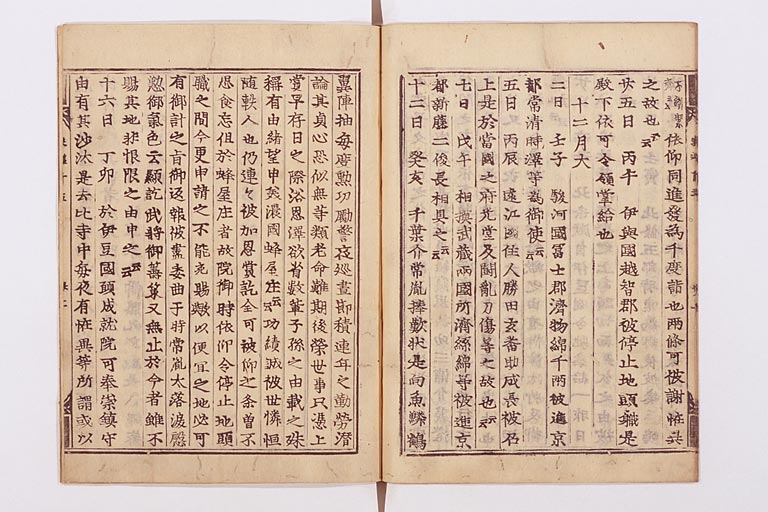 依仰同進發為千度詣也兩條可被謝恠異
之故也云云
廿五日 丙午 伊與國越智郡被停止地頭職是
殿下依可令領掌給也
十二月大
二日 壬子 駿河國冨士郡濟物綿千兩被進京
都常清時澤等為御使云云
五日 丙辰 遠江國住人勝田玄番助成長被召
上是於當國之府光堂及鬪亂刃傷等之故也云云
七日 戊午 相撲武藏兩國所濟絲綿等被進京
都新藤二俊長相具之云云
十二日 癸亥 千葉介常胤捧欵狀是向魚鱗鶴
翼陣抽每度勲功勵警夜巡晝節積連年之勤勞濟
論其貞心恐似無等類老命難期後榮世事只憑上
當早存日之際浴恩澤欲省數輩子孫之由載之殊
稱有由緒望申美濃國蜂屋庄云云功績誠被世憐恒
随軼人也仍連々被加恩賞訖全可被仰之条曽不
思食忘但於蜂屋庄者故院御時依仰令停止地頭
職之間今更申請之不能充賜歟以便宜之地必可
有御計之旨御返報被盡委曲于時常胤太落淚慇
懃御氣色云顧託武将御善策又無止於今者雖不
賜其地非恨限之由申之云云
十六日 丁卯 於伊豆國願成就院可奉崇鎮守
由有其沙汰是去比寺中每夜有恠異等所謂或以